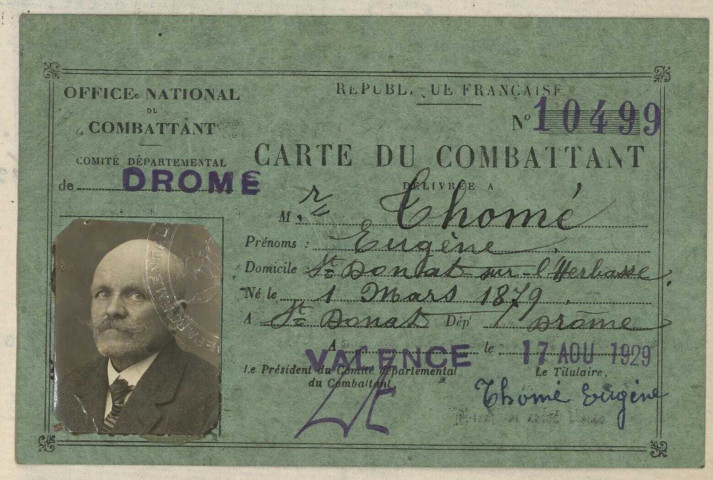 OFFICE NATIONAL
DU
COMBATTANT
COMITÉ DÉPARTEMENTAL
de DROME
REPUBLIQUE FRANÇAISE
N° 10499
CARTE DU COMBATTANT
DÉLIVRÉE A
M r Thomé
Prénoms : Eugène
Domicile St Donat sur l'Herbasse
Né le 1 Mars 1879
A St Donat Dép t Drôme
A VALENCE le 17 AOU 1929
Le Président du Comité départemental
du Combattant
Le Titulaire,
Thomé Eugène